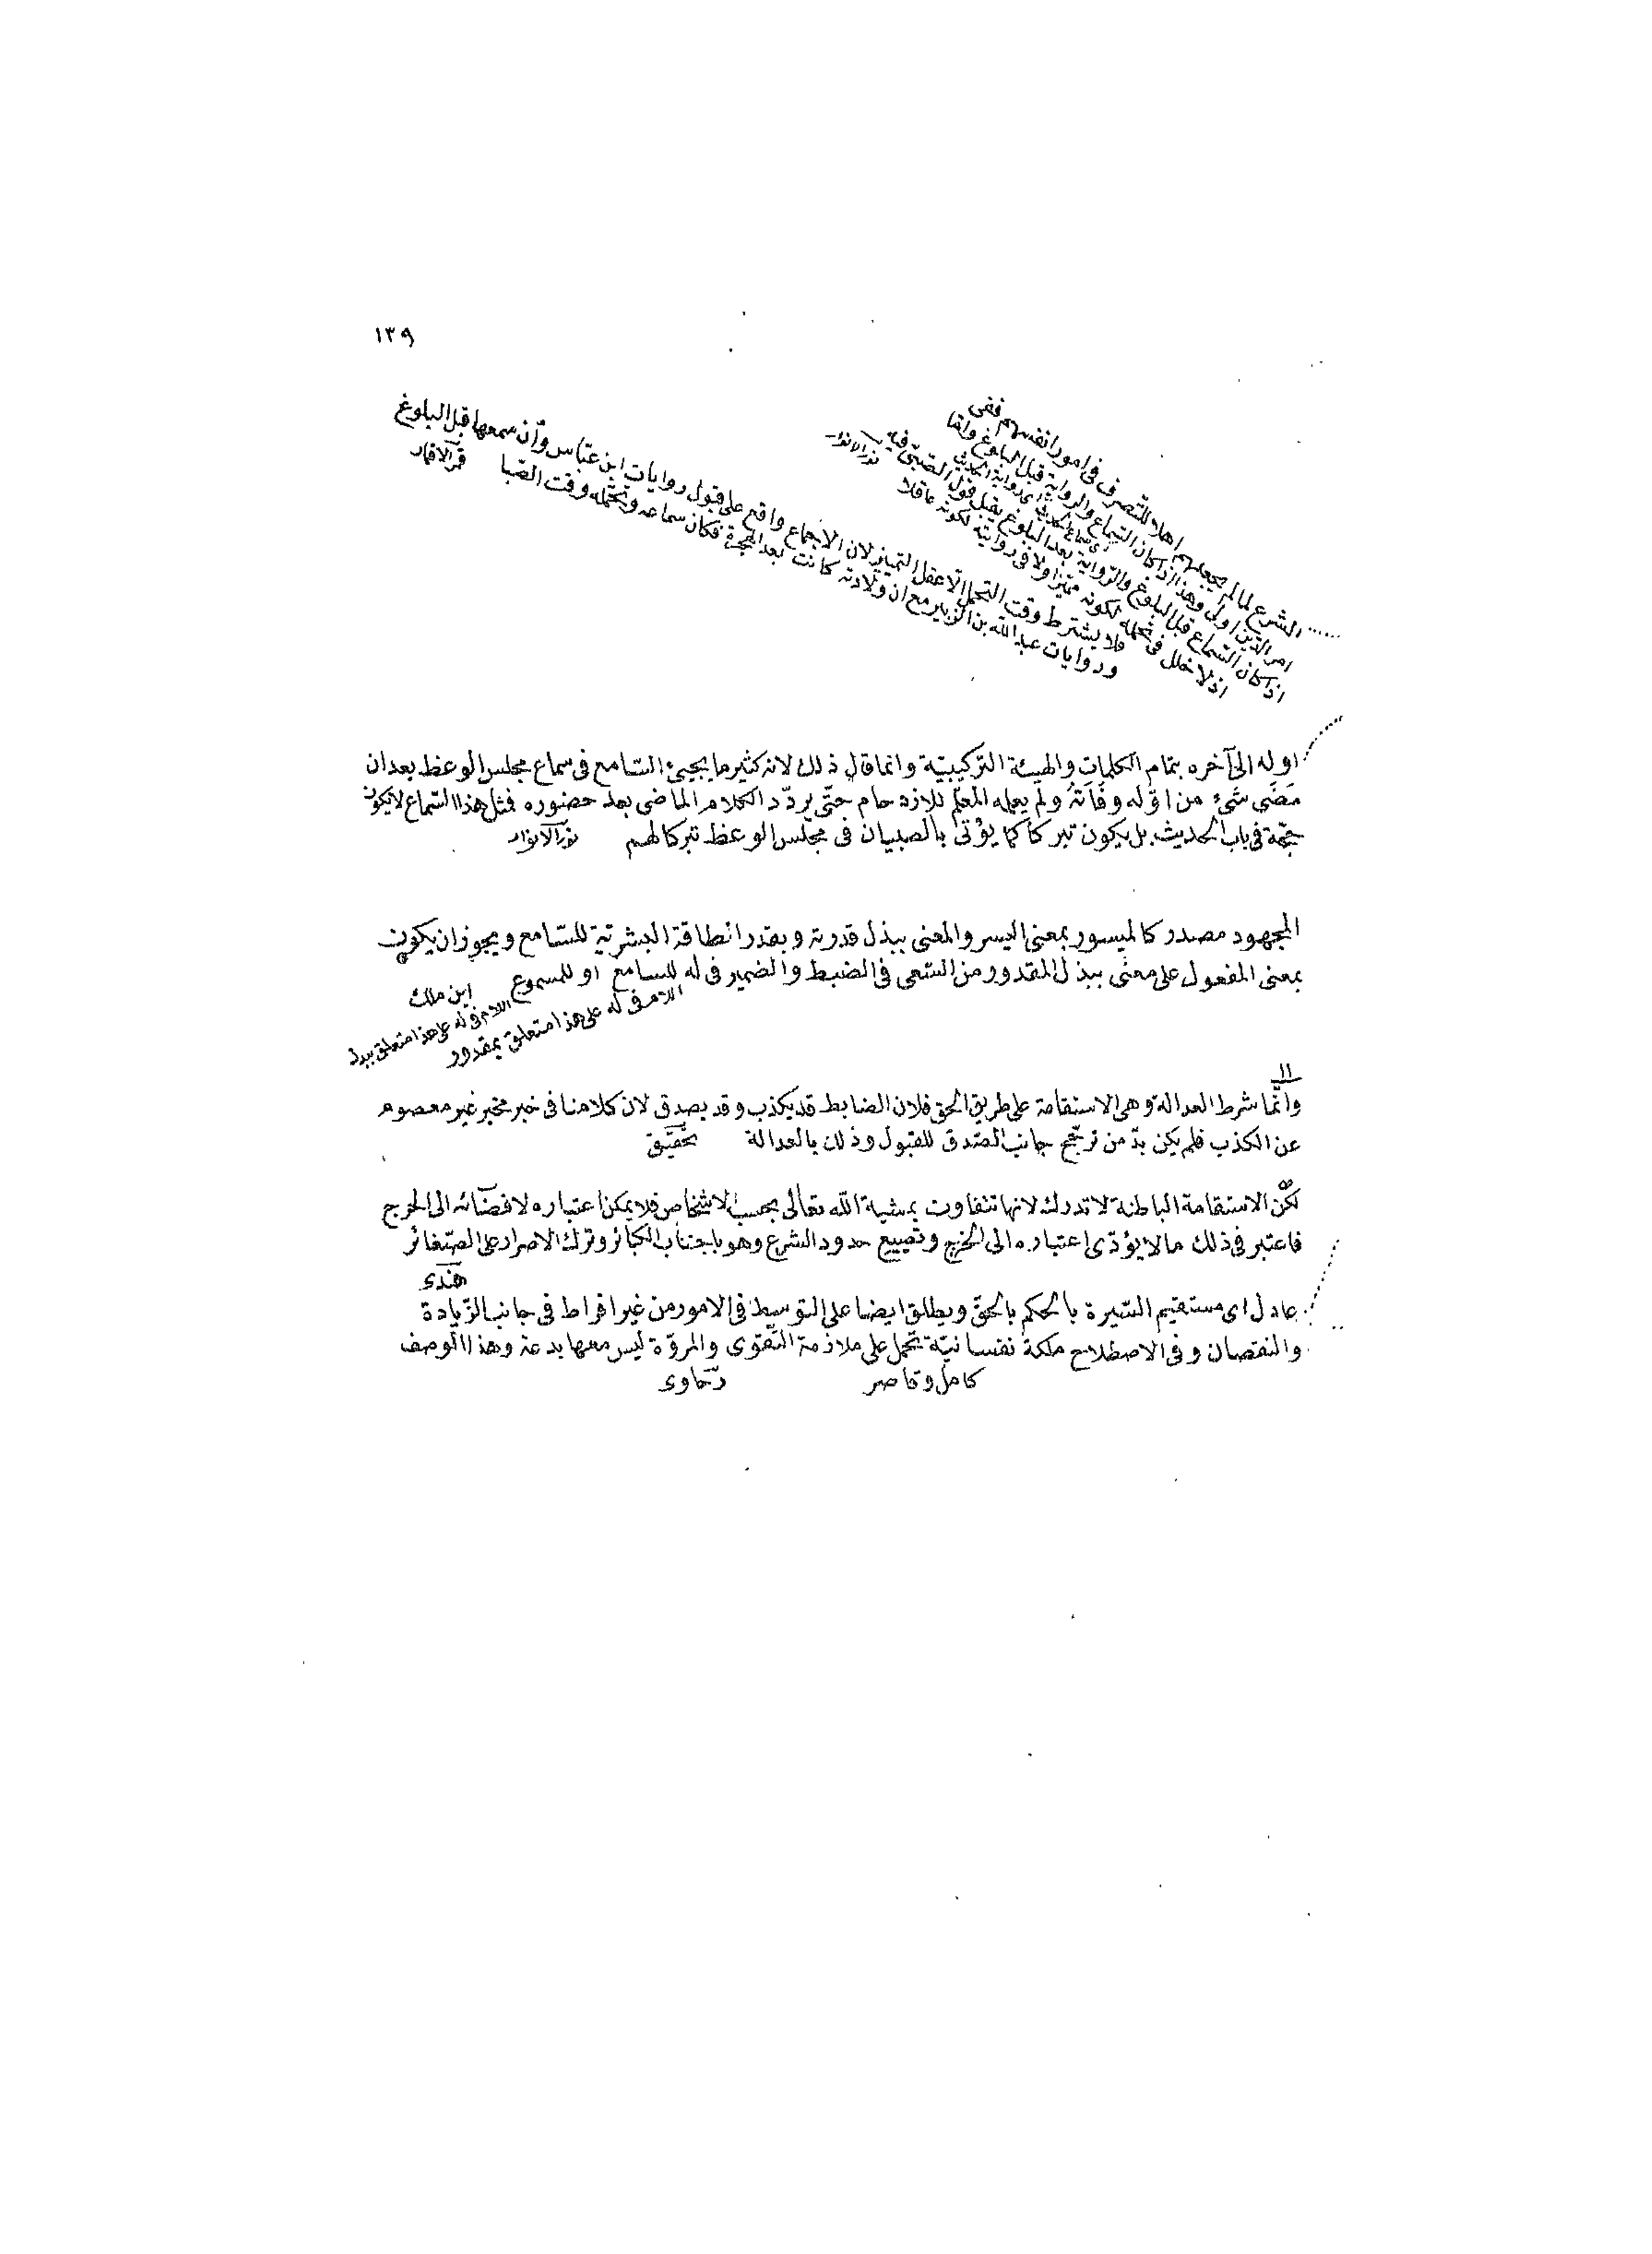 ١٣٩
الشرع لما لم يجعلهم اهلا للتصرف فى امور انفسهم ففى
امر الدين اولى وهذا اذا كان السماع والرواية قبل البلوغ واما
اذا كان السماع قبل البلوغ والرواية بعد البلوغ يقبل قول الصبى فيه
اذ لا خلل فى تحمله لكونه مميزا ولا فى روايته لكونه عاقلا نور الانوار
فلا يشترط وقت التحمل الا عقل التمييز لان الاجماع واقع على قبول روايات ابن عباس وان سمعها قبل البلوغ
وروايات عبد الله بن الزبير مع ان ولادته كانت بعد الهجرة فكان سماعه وتحمله وقت الصبا قمر الاقمار
اوله الى آخره بتمام الكلمات والهيئة التركيبية وانما قال ذلك لانه كثير ما يجيئ السامع فى سماع مجلس الوعظ بعد ان
مَضَى شَىْء من اوّله وفَاتَهُ ولم يعلمه المعلّم للازدحام حتّى يردّد الكلام الماضى بعد حضوره فمثل هذا السّماع لا يكون
حجّة فى باب الحديث بل يكون تبركا كما يؤتى بالصبيان فى مجلس الوعظ تبركا لهم نور الانوار
المجهود مصدر كالميسور بمعنى اليسر والمعنى ببذل قدرته وبقدر الطاقة البشرية للسّامع ويجوز ان يكون
بمعنى المفعول على معنى ببذل المقدور من السّعى فى الضبط والضمير فى له للسامع او للمسموع ابن ملك
اللام فى له على هذا متعلق بمقدور
اللام فى له على هذا متعلق ببذل
١١
وانّما شرط العدالة وهى الاستقامة على طريق الحق فلان الضابط قد يكذب وقد يصدق لان كلامنا فى خبر مخبر غير معصوم
عن الكذب فلم يكن بدّ من ترجّح جانب الصّدق للقبول وذلك بالعدالة تحقيق
لكن الاستقامة الباطنة لا تدرك لانها تتفاوت بمشية الله تعالى بحسب الاشخاص فلا يمكن اعتباره لافضائه الى الحرج
فاعتبر فى ذلك ما لا يؤدّى اعتباره الى الحرج وتضييع حدود الشرع وهو باجتناب الكبائر وترك الاصرار على الصّغائر
هندى
عادل اى مستقيم السّيرة بالحكم بالحق ويطلق ايضا على التوسيط فى الامور من غير افراط فى جانب الزّيادة
والنقصان وفى الاصطلاح ملكة نفسانيّة تحمل على ملازمة التّقوى والمروّة ليس معها بدعة وهذا الوصف
كامل وقاصر رهاوى